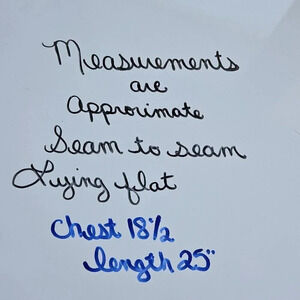 Measurements
are
Approximate
Seam to seam
Lying flat
Chest 18½
length 25"